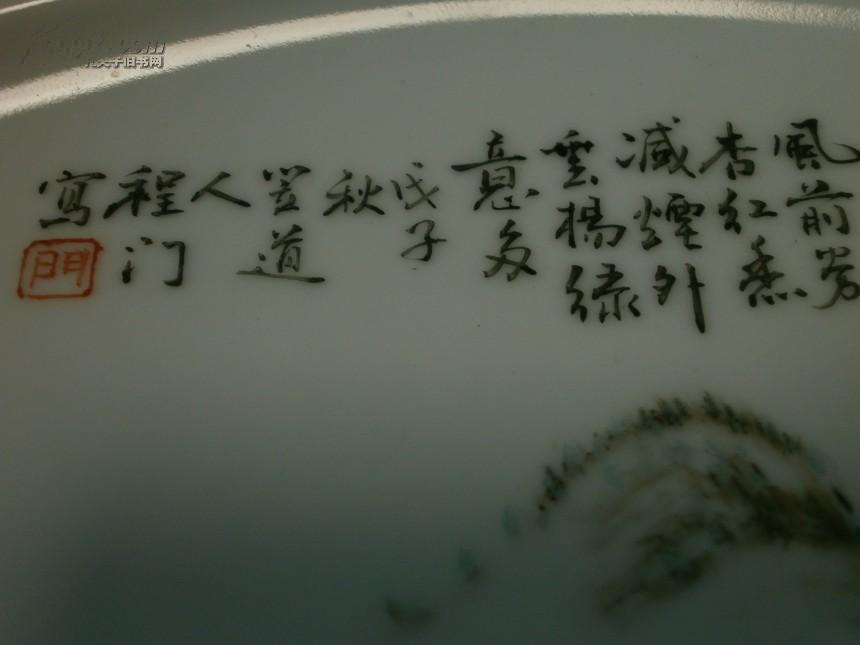 風前芳
杏紅香
減煙外
垂楊綠
意多
戊子
秋
笠道
人
程门
寫
門
孔夫子旧书网